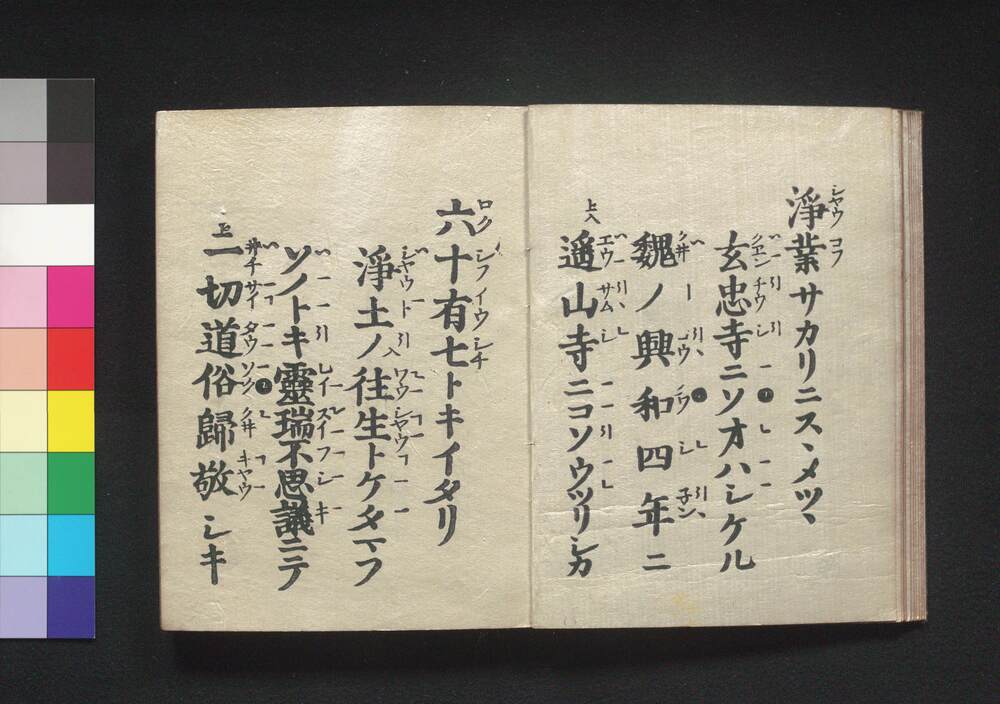 淨業サカリニスヽメツヽ
玄忠寺ニソオハシケル
魏ノ興和四年ニ
遥山寺ニコソウツリシカ
六十有七トキイタリ
淨土ノ往生トケタマフ
ソノトキ靈瑞不思議ニテ
一切道俗歸敬シキ